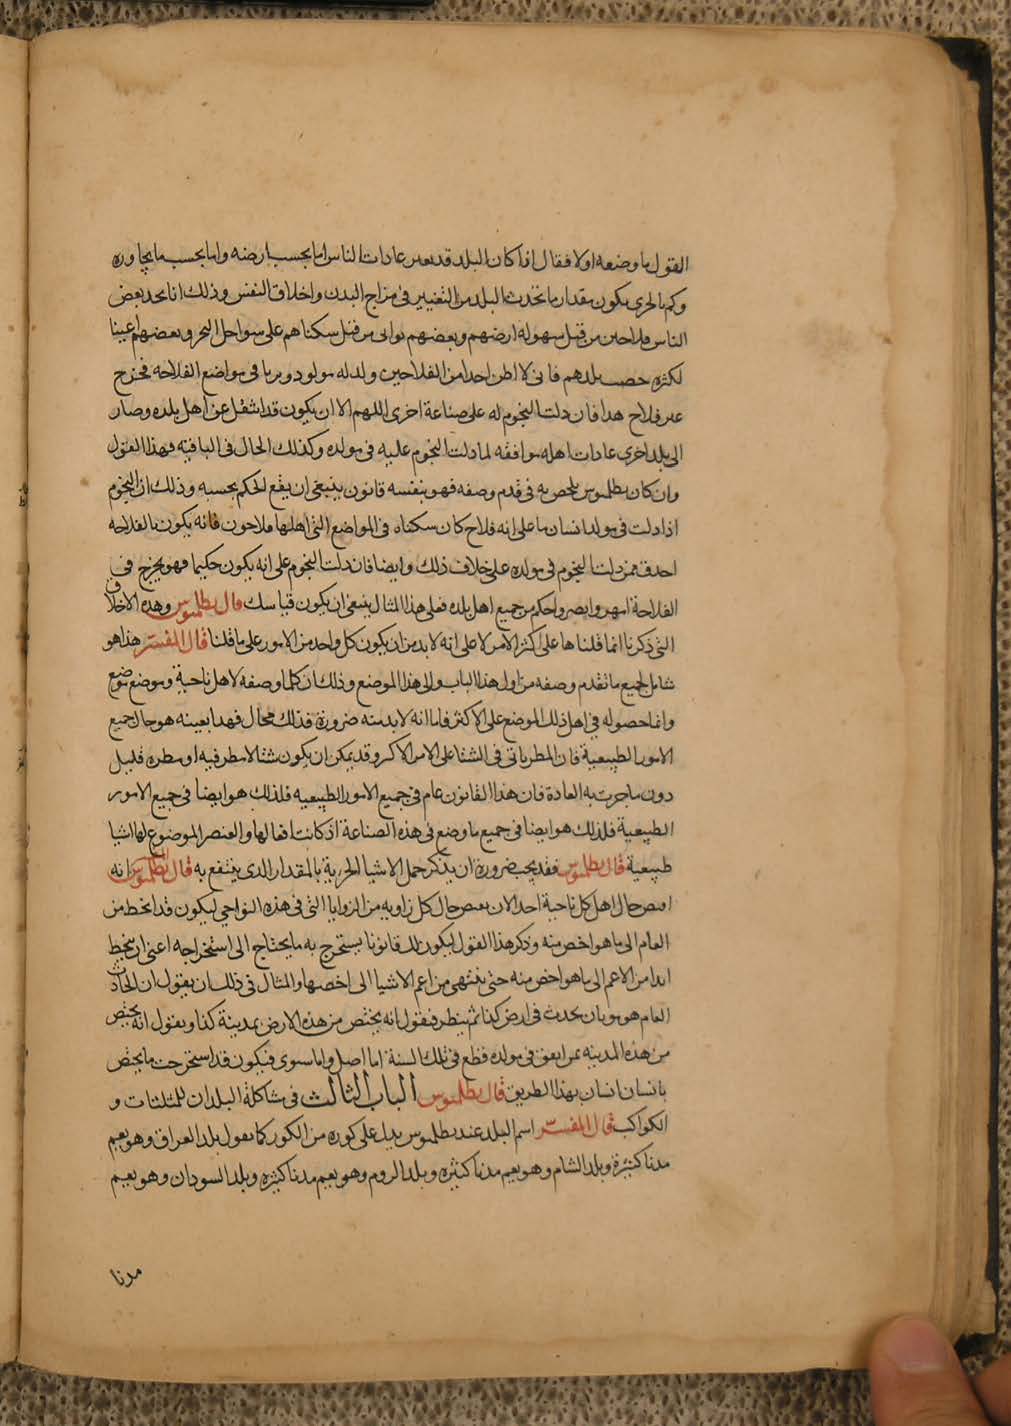 القول ما وضعه اولا فقال اذا كان البلد قد يغير عادات الناس اما بحسب ارضه واما بحسب ما يجاوره
وكم بالحرى يكون مقدار ما تحدث البلد من التغيير فى مزاج البدن واخلاق النفس وذلك انا نجد بعض
الناس فلاحين من قبل سهولة ارضهم وبعضهم نواتى من قبل سكناهم على سواحل البحر وبعضهم اغنيا
لكثرة خصب بلدهم فانى لا اظن احدا من الفلاحين ولد له مولود وربا فى مواضع الفلاحه فخرج
غير فلاح هذا فان دلت النجوم له على صناعة اخرى اللهم الا ان يكون قد انتقل عن اهل بلده وصار
الى بلد اخرى عادات اهله موافقه لما دلت النجوم عليه فى مولده وكذلك الحال فى الباقيه فهذا القول
وان كان بطلميوس يلخص به فى قدم وصفه فهو بنفسه قانون ينبغى ان يقع الحكم بحسبه وذلك ان النجوم
اذا دلت فى مولد انسان ما على انه فلاح كان سكناه فى المواضع التى اهلها فلاحون فانه يكون بالفلاحه
احدق ممن دلت النجوم فى مولده على خلاف ذلك وايضا فان دلت النجوم على انه يكون حكيما فهو يخرج فى
الفلاحة امهر وابصر واحكم من جميع اهل بلده فعلى هذا المثال ينبغى ان يكون قياسك قال بطلميوس وهذه الاخلاق
التى ذكرنا انما قلناها على اكثر الامر لا على انه لا بد من ان يكون كل واحد من الامور على ما قلنا قال المفسر هذا هو
شامل لجميع ما تقدم وصفه من اول هذا الباب والى هذا الموضع وذلك ان كلما وصفه لاهل ناحية وموضع موضع
وانما حصوله فى اهل ذلك الموضع على الاكثر فاما انه لا بد منه ضرورة فذلك محال فهذا بعينه هو حال جميع
الامور الطبيعية فان المطر ياتى فى الشتا على الامر الاكثر وقد يمكن ان يكون شتا لا مطر فيه او مطره قليل
دون ما جرت به العادة فان هذا القانون عام فى جميع الامور الطبيعيه فلذلك هو ايضا فى جميع الامور
الطبيعية فلذلك هو ايضا فى جميع ما وضع فى هذه الصناعة اذ كانت افعالها والعنصر الموضوع لها اشيا
طبيعية قال بطلميوس فقد يجب ضرورة ان يذكر جمل الاشيا الجزية بالمقدار الذى ينتفع به قال بطلميوس انه
اقتص حال اهل كل ناحية احد الان يقتص حال كل زاويه من الزوايا التى فى هذه النواحى ليكون قد انحط من
العام الى ما هو اخص منه وذكر هذا القول ليكون لك قانونا يستخرج به ما يحتاج الى استخراجه اعنى ان ينحط
ابدا من الاعم الى ما هو اخص منه حتى ينتهى من اعم الاشيا الى اخصها والمثال فى ذلك ان يقول ان الحادث
العام هو موتان يحدث فى ارض كذا ثم ينظر فيقول انه يختص من هذه الارض بمدينة كذا ويقول انه يختص
من هذه المدينه بمن اتفق فى مولده قطع فى تلك السنة اما اصلى واما سنوى فيكون قد استخرجت ما يختص
بانسان انسان بهذا الطريق قال بطلميوس الباب الثالث فى شاكلة البلدان للمثلثات و
الكواكب قال المفسر اسم البلد عند بطلميوس يدل على كوره من الكور كما يقول بلد العراق وهو يعم
مدنا كثيرة وبلد الشام وهو يعم مدنا كثيره وبلد الروم وهو يعم مدنا كثيره وبلد السودان وهو يعم
مدنا